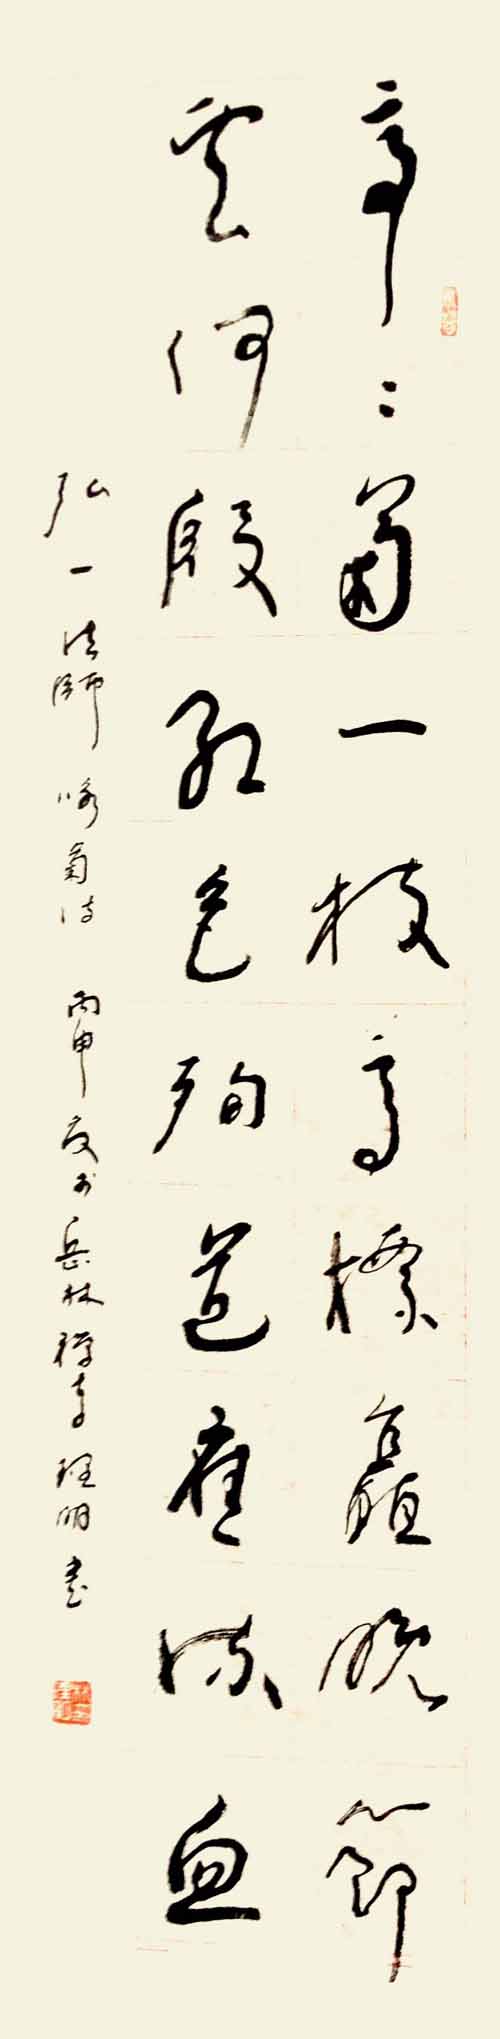 亭亭菊一枝高標矗晚節
雲何殷紅色殉道應流血
弘一法師咏菊詩 丙申夏於岳林禪寺 明書